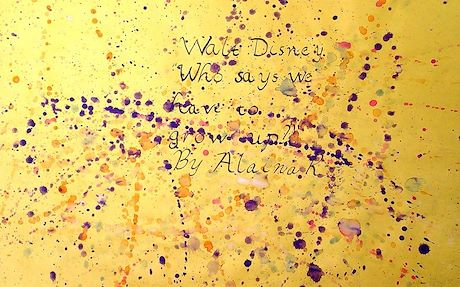 Walt Disney.
Who says we
have to
grow up?
By Alaina K